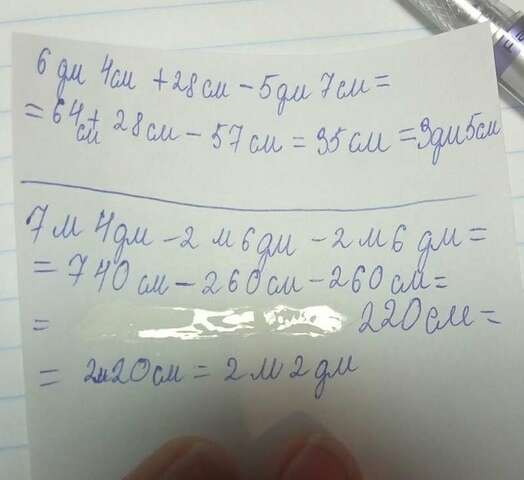 6 дм 4см + 28см – 5дм 7см =
= 64см + 28см – 57см = 35см = 3дм5см
7м 4дм – 2м6дм – 2м6дм =
= 740см – 260см – 260см =
= 220см =
= 2м20см = 2м2дм